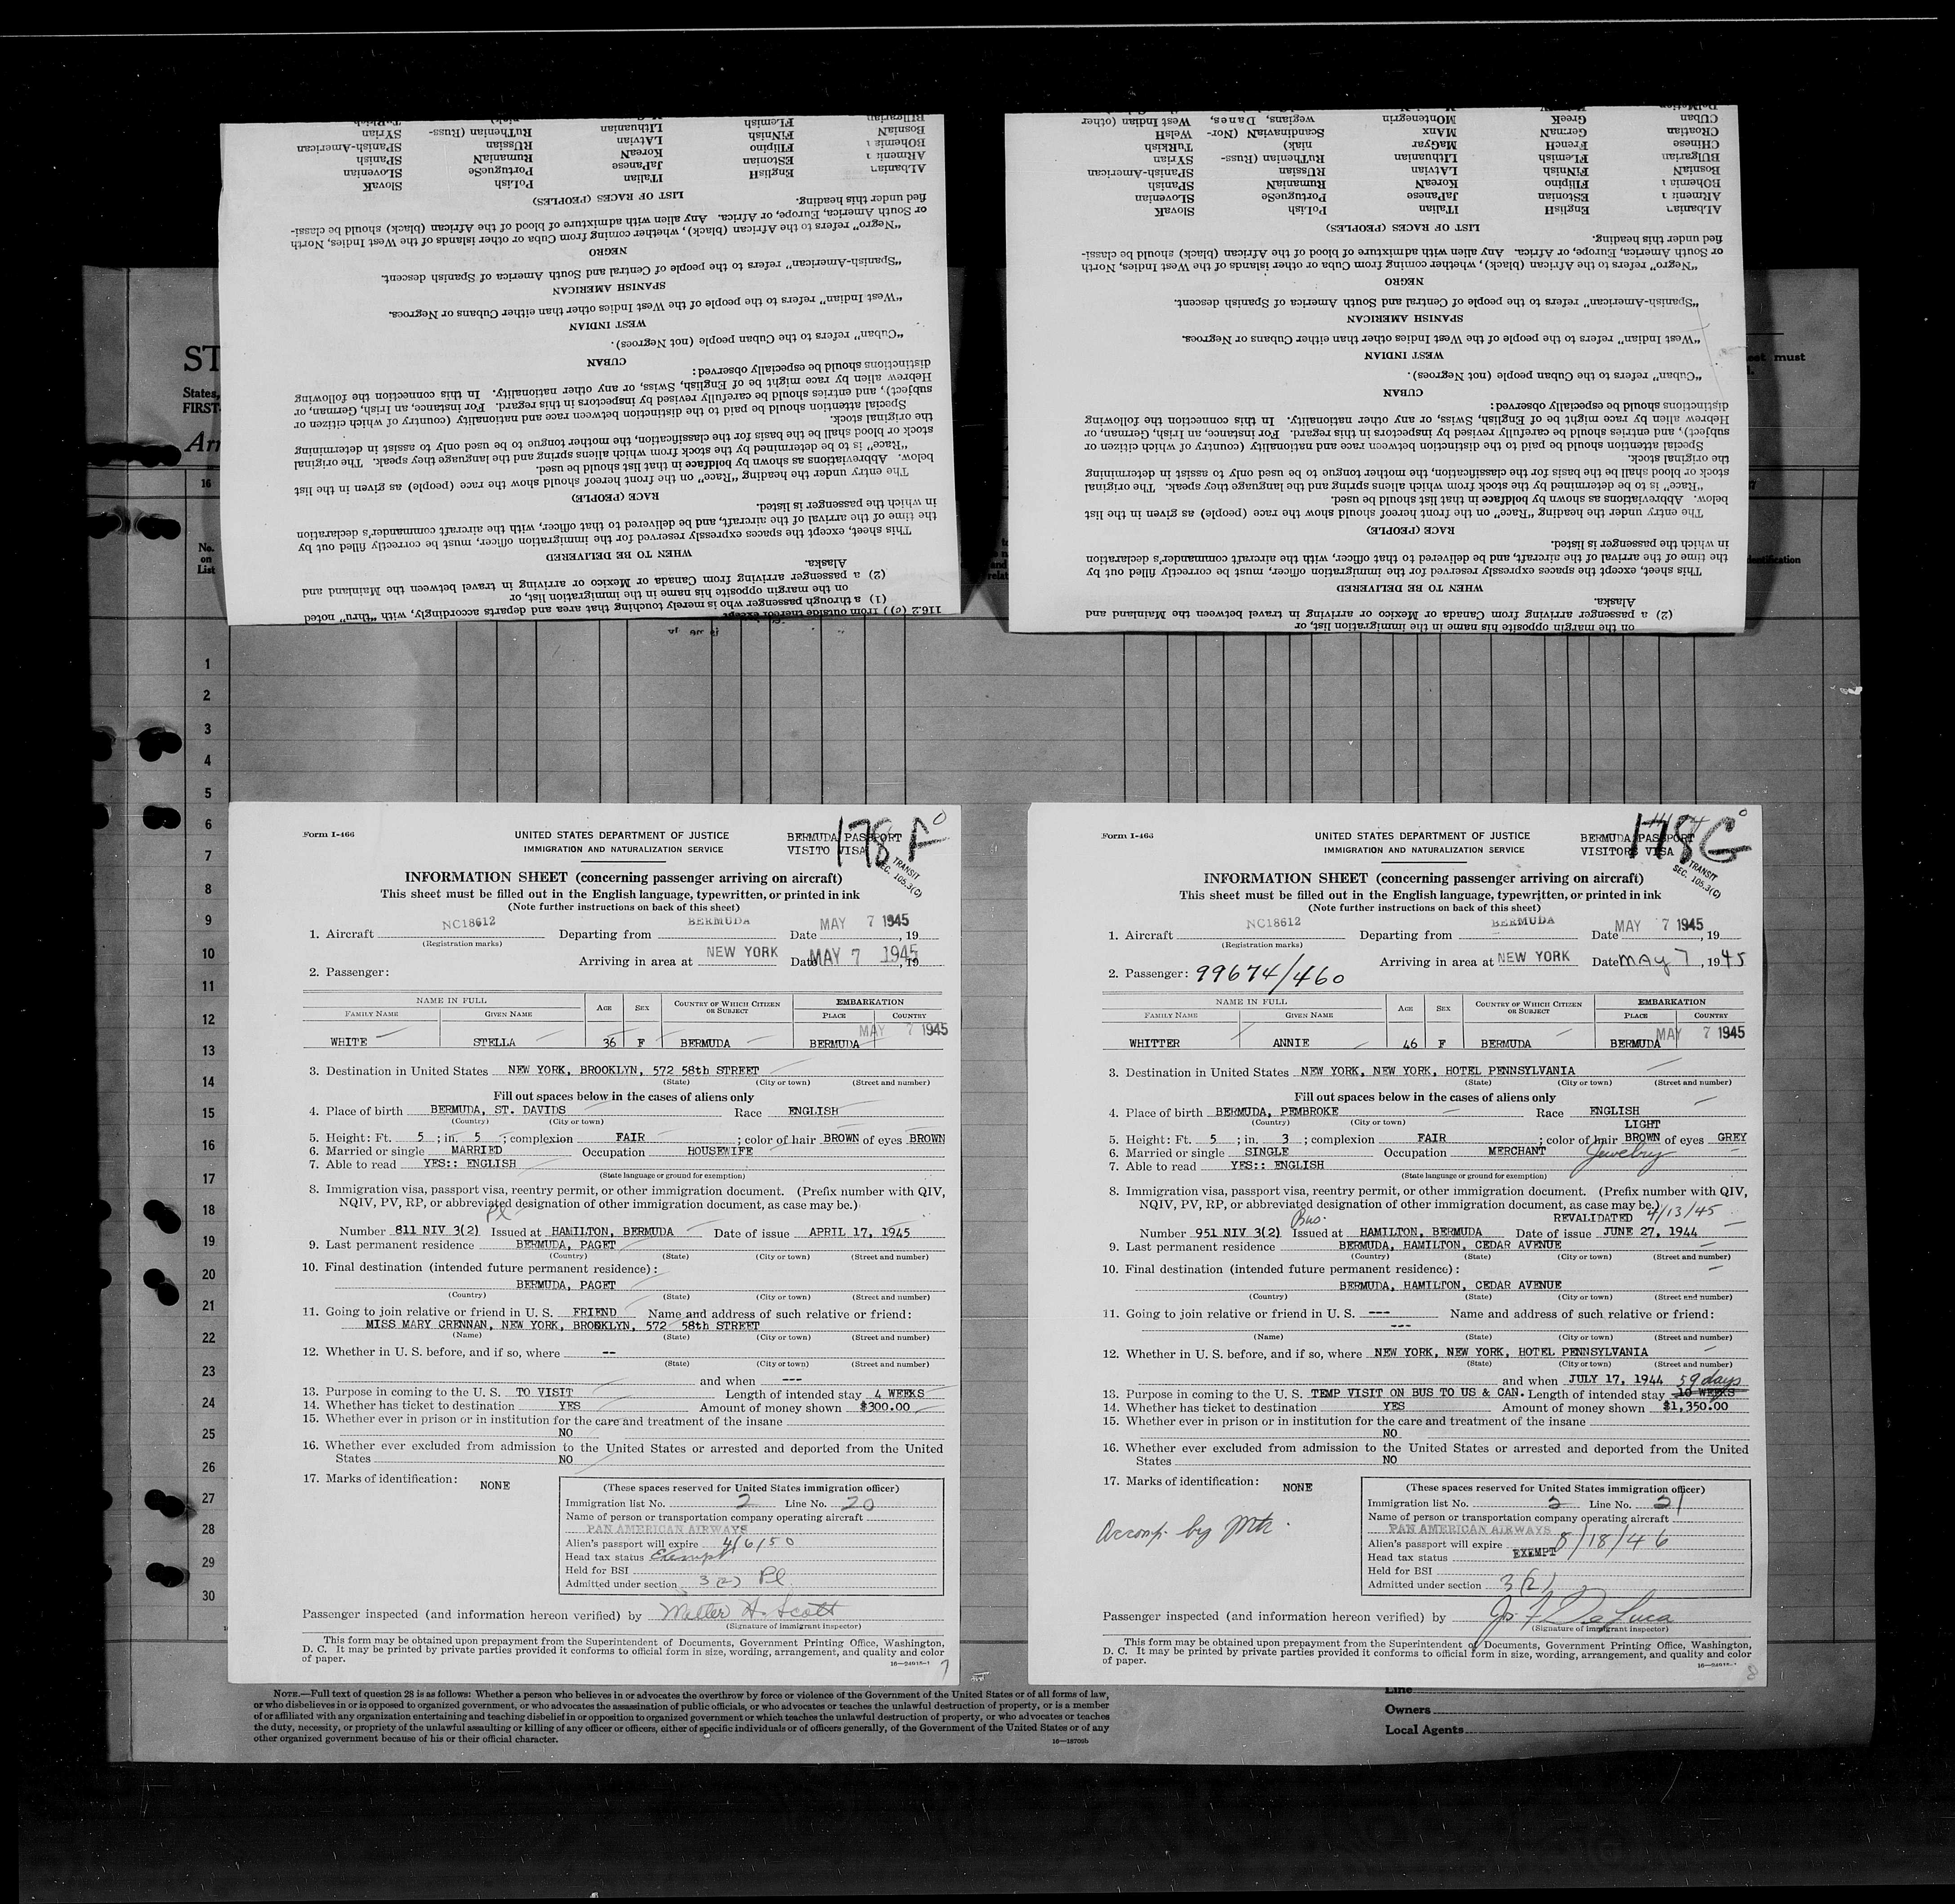 SlovaK
SLovenian
SPanish
SPanish-American
SYrian
PoLish
PortugueSe
RumaniaN
RUssian
RuThenian (Russ-
ITalian
JaPanese
KoreaN
LAtvian
LIthuanian
EnglisH
EStonian
FIlipino
FiNnish
FLemish
ALbanian
ARmenian
BOhemian
BosniaN
BUlgarian
LIST OF RACES (PEOPLES)
fied under this heading.
or South America, Europe, or Africa. Any alien with admixture of blood of the African (black) should be classi-
"Negro" refers to the African (black), whether coming from Cuba or other islands of the West Indies, North
NEGRO
"Spanish-American" refers to the people of Central and South America of Spanish descent.
SPANISH AMERICAN
"West Indian" refers to the people of the West Indies other than either Cubans or Negroes.
WEST INDIAN
"Cuban" refers to the Cuban people (not Negroes).
CUBAN
distinctions should be especially observed:
Hebrew alien by race might be of English, Swiss, or any other nationality. In this connection the following
subject), and entries should be carefully revised by inspectors in this regard. For instance, an Irish, German, or
Special attention should be paid to the distinction between race and nationality (country of which citizen or
the original stock.
stock or blood shall be the basis for the classification, the mother tongue to be used only to assist in determining
"Race" is to be determined by the stock from which aliens spring and the language they speak. The original
below. Abbreviations as shown by boldface in that list should be used.
The entry under the heading "Race" on the front hereof should show the race (people) as given in the list
RACE (PEOPLE)
in which the passenger is listed.
the time of the arrival of the aircraft, and be delivered to that officer, with the aircraft commander's declaration
This sheet, except the spaces expressly reserved for the immigration officer, must be correctly filled out by
WHEN TO BE DELIVERED
Alaska.
(2) a passenger arriving from Canada or Mexico or arriving in travel between the Mainland and
on the margin opposite his name in the immigration list, or
(1) a through passenger who is merely touching that area and departs accordingly, with "thru" noted
116.2 (c)) from outside thereof except
West Indian (other
WelsH
TuRkish
SYrian
SPanish-American
SPanish
SLovenian
SlovaK
Scandinavian (Nor-
wegians, Danes,
RuThenian (Russ-
niak)
RUssian
RumaniaN
PortugueSe
PoLish
MOntenegrin
MAnx
MaGyar
LIthuanian
LAtvian
KoreaN
JaPanese
ITalian
GreeK
GermaN
FrencH
FLemish
FiNnish
FIlipino
EStonian
EnglisH
CUban
CRoatian
CHinese
BUlgarian
BosniaN
BOhemian
ARmenian
ALbanian
LIST OF RACES (PEOPLES)
fied under this heading.
or South America, Europe, or Africa. Any alien with admixture of blood of the African (black) should be classi-
"Negro" refers to the African (black), whether coming from Cuba or other islands of the West Indies, North
NEGRO
"Spanish-American" refers to the people of Central and South America of Spanish descent.
SPANISH AMERICAN
"West Indian" refers to the people of the West Indies other than either Cubans or Negroes.
WEST INDIAN
"Cuban" refers to the Cuban people (not Negroes).
CUBAN
distinctions should be especially observed:
Hebrew alien by race might be of English, Swiss, or any other nationality. In this connection the following
subject), and entries should be carefully revised by inspectors in this regard. For instance, an Irish, German, or
Special attention should be paid to the distinction between race and nationality (country of which citizen or
the original stock.
stock or blood shall be the basis for the classification, the mother tongue to be used only to assist in determining
"Race" is to be determined by the stock from which aliens spring and the language they speak. The original
below. Abbreviations as shown by boldface in that list should be used.
The entry under the heading "Race" on the front hereof should show the race (people) as given in the list
RACE (PEOPLE)
in which the passenger is listed.
the time of the arrival of the aircraft, and be delivered to that officer, with the aircraft commander's declaration
This sheet, except the spaces expressly reserved for the immigration officer, must be correctly filled out by
WHEN TO BE DELIVERED
Alaska.
(2) a passenger arriving from Canada or Mexico or arriving in travel between the Mainland and
on the margin opposite his name in the immigration list, or
ST
States,
FIRST-
Arr
must
16
No.
on
List
1
2
3
4
5
6
7
8
9
10
11
12
13
14
15
16
17
18
19
20
21
22
23
24
25
26
27
28
29
30
Form I-466
UNITED STATES DEPARTMENT OF JUSTICE
IMMIGRATION AND NATURALIZATION SERVICE
BERMUDA PASSPORT
VISITO VISA
178 F
TRANSIT
SEC. 105.3(C)
INFORMATION SHEET (concerning passenger arriving on aircraft)
This sheet must be filled out in the English language, typewritten, or printed in ink
(Note further instructions on back of this sheet)
1. Aircraft NC18612 Departing from BERMUDA Date MAY 7 1945, 19
(Registration marks)
Arriving in area at NEW YORK Date MAY 7 1945, 19
2. Passenger:
NAME IN FULL AGE SEX COUNTRY OF WHICH CITIZEN OR SUBJECT EMBARKATION
FAMILY NAME GIVEN NAME PLACE COUNTRY
MAY 7 1945
WHITE STELLA 36 F BERMUDA BERMUDA
3. Destination in United States NEW YORK, BROOKLYN, 572 58th STREET
(State) (City or town) (Street and number)
Fill out spaces below in the cases of aliens only
4. Place of birth BERMUDA, ST. DAVIDS Race ENGLISH
(Country) (City or town)
5. Height: Ft. 5 ; in. 5 ; complexion FAIR ; color of hair BROWN of eyes BROWN
6. Married or single MARRIED Occupation HOUSEWIFE
7. Able to read YES:: ENGLISH
(State language or ground for exemption)
8. Immigration visa, passport visa, reentry permit, or other immigration document. (Prefix number with QIV,
NQIV, PV, RP, or abbreviated designation of other immigration document, as case may be.)
Pl
Number 811 NIV 3(2) Issued at HAMILTON, BERMUDA Date of issue APRIL 17, 1945
9. Last permanent residence BERMUDA, PAGET
(Country) (State) (City or town) (Street and number)
10. Final destination (intended future permanent residence):
BERMUDA, PAGET
(Country) (State) (City or town) (Street and number)
11. Going to join relative or friend in U. S. FRIEND Name and address of such relative or friend:
MISS MARY CRENNAN, NEW YORK, BROOKLYN, 572 58th STREET
(Name) (State) (City or town) (Street and number)
12. Whether in U. S. before, and if so, where --
(State) (City or town) (Street and number)
and when ---
13. Purpose in coming to the U. S. TO VISIT Length of intended stay 4 WEEKS
14. Whether has ticket to destination YES Amount of money shown $300.00
15. Whether ever in prison or in institution for the care and treatment of the insane
NO
16. Whether ever excluded from admission to the United States or arrested and deported from the United
States NO
17. Marks of identification: NONE
(These spaces reserved for United States immigration officer)
Immigration list No. 2 Line No. 20
Name of person or transportation company operating aircraft
PAN AMERICAN AIRWAYS
Alien's passport will expire 4/6/50
Head tax status Exempt
Held for BSI
Admitted under section 3(2) Pl.
Passenger inspected (and information hereon verified) by Walter H. Scott
(Signature of immigrant inspector)
This form may be obtained upon prepayment from the Superintendent of Documents, Government Printing Office, Washington,
D. C. It may be printed by private parties provided it conforms to official form in size, wording, arrangement, and quality and color
of paper.
7
Form I-466
UNITED STATES DEPARTMENT OF JUSTICE
IMMIGRATION AND NATURALIZATION SERVICE
BERMUDA PASSPORT
VISITORS VISA
178 G
TRANSIT
SEC. 105.3(C)
INFORMATION SHEET (concerning passenger arriving on aircraft)
This sheet must be filled out in the English language, typewritten, or printed in ink
(Note further instructions on back of this sheet)
1. Aircraft NC18612 Departing from BERMUDA Date MAY 7 1945, 19
(Registration marks)
Arriving in area at NEW YORK Date MAY 7, 1945
2. Passenger: 99674/460
NAME IN FULL AGE SEX COUNTRY OF WHICH CITIZEN OR SUBJECT EMBARKATION
FAMILY NAME GIVEN NAME PLACE COUNTRY
MAY 7 1945
WHITTER ANNIE 46 F BERMUDA BERMUDA
3. Destination in United States NEW YORK, NEW YORK, HOTEL PENNSYLVANIA
(State) (City or town) (Street and number)
Fill out spaces below in the cases of aliens only
4. Place of birth BERMUDA, PEMBROKE Race ENGLISH
(Country) (City or town)
LIGHT
5. Height: Ft. 5 ; in. 3 ; complexion FAIR ; color of hair BROWN of eyes GREY
6. Married or single SINGLE Occupation MERCHANT Jewelry
7. Able to read YES:: ENGLISH
(State language or ground for exemption)
8. Immigration visa, passport visa, reentry permit, or other immigration document. (Prefix number with QIV,
NQIV, PV, RP, or abbreviated designation of other immigration document, as case may be.)
Bus. REVALIDATED 4/13/45
Number 951 NIV 3(2) Issued at HAMILTON, BERMUDA Date of issue JUNE 27, 1944
9. Last permanent residence BERMUDA, HAMILTON, CEDAR AVENUE
(Country) (State) (City or town) (Street and number)
10. Final destination (intended future permanent residence):
BERMUDA, HAMILTON, CEDAR AVENUE
(Country) (State) (City or town) (Street and number)
11. Going to join relative or friend in U. S. --- Name and address of such relative or friend:
---
(Name) (State) (City or town) (Street and number)
12. Whether in U. S. before, and if so, where NEW YORK, NEW YORK, HOTEL PENNSYLVANIA
(State) (City or town) (Street and number)
and when JULY 17, 1944 59 days
13. Purpose in coming to the U. S. TEMP VISIT ON BUS TO US & CAN. Length of intended stay 10 WEEKS
14. Whether has ticket to destination YES Amount of money shown $1,350.00
15. Whether ever in prison or in institution for the care and treatment of the insane
NO
16. Whether ever excluded from admission to the United States or arrested and deported from the United
States NO
17. Marks of identification: NONE
Accomp. by Mtr.
(These spaces reserved for United States immigration officer)
Immigration list No. 2 Line No. 21
Name of person or transportation company operating aircraft
PAN AMERICAN AIRWAYS
Alien's passport will expire 8/18/46
Head tax status EXEMPT
Held for BSI
Admitted under section 3(2)
Passenger inspected (and information hereon verified) by Jos. F. DeLuca
(Signature of immigrant inspector)
This form may be obtained upon prepayment from the Superintendent of Documents, Government Printing Office, Washington,
D. C. It may be printed by private parties provided it conforms to official form in size, wording, arrangement, and quality and color
of paper.
8
NOTE.—Full text of question 28 is as follows: Whether a person who believes in or advocates the overthrow by force or violence of the Government of the United States or of all forms of law,
or who disbelieves in or is opposed to organized government, or who advocates the assassination of public officials, or who advocates or teaches the unlawful destruction of property, or is a member
of or affiliated with any organization entertaining and teaching disbelief in or opposition to organized government or which teaches the unlawful destruction of property, or who advocates or teaches
the duty, necessity, or propriety of the unlawful assaulting or killing of any officer or officers, either of specific individuals or of officers generally, of the Government of the United States or of any
other organized government because of his or their official character.
16—18709b
Line
Owners
Local Agents